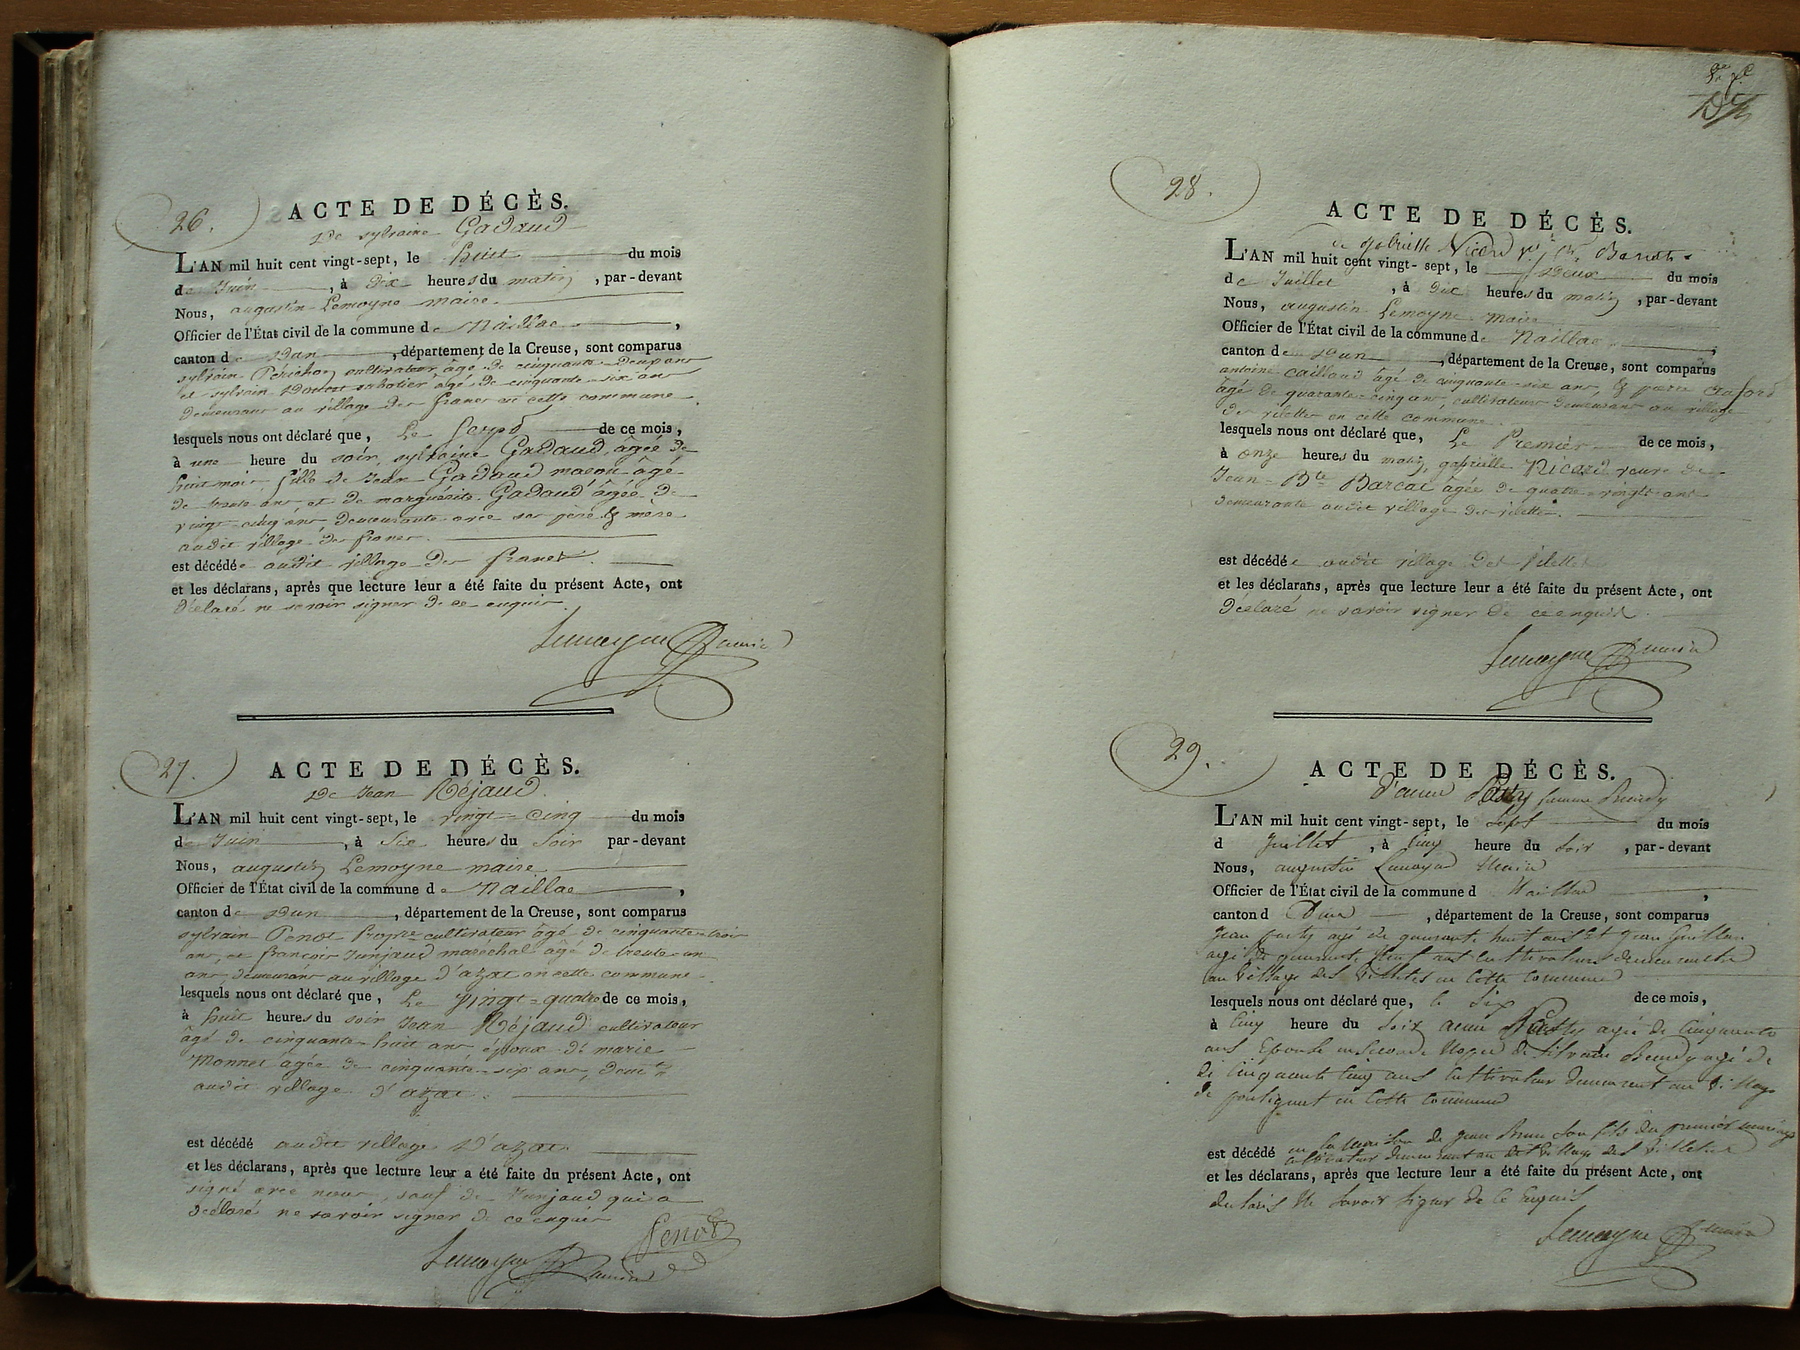 26.
ACTE DE DÉCÈS.
De sylvaine Gadaud
L'AN mil huit cent vingt-sept, le huit du mois
de Juin, à Dix heures du matin, par-devant
Nous, augustin Lemoyne maire
Officier de l'État civil de la commune de Naillac,
canton de Dun, département de la Creuse, sont comparus
sylvain Périchon cultivateur, âgé de cinquante-Deux ans
et sylvain sabotier âgé de cinquante-six ans
demeurans au village des francs en cette commune
lesquels nous ont déclaré que, Le Sept de ce mois,
à une heure du soir, sylvaine Gadaud, âgée de
huit mois, fille de Jean Gadaud maçon âgé
de trente ans, et de marguerite Gadaud âgée de
vingt-cinq ans, Demeurante avec ses père & mère
audit village des francs.
est décédée audit village des francs.
et les déclarans, après que lecture leur a été faite du présent Acte, ont
Déclaré ne savoir signer de ce enquis.
Lemoyne maire
27.
ACTE DE DÉCÈS.
De Jean Réjaud.
L'AN mil huit cent vingt-sept, le vingt-cinq du mois
de Juin, à Six heures du Soir par-devant
Nous, augustin Lemoyne maire
Officier de l'État civil de la commune de Naillac,
canton de Dun, département de la Creuse, sont comparus
sylvain Penot cultivateur âgé de cinquante-trois
ans, et françois Junjaud maréchal âgé de trente-un
ans demeurans au village d'azat en cette commune
lesquels nous ont déclaré que, Le Vingt-quatre de ce mois,
à huit heures du soir Jean Réjaud cultivateur
âgé de cinquante-huit ans époux de marie
Monnet âgée de cinquante-six ans, demt
audit village d'azat.
est décédé audit village D'azat
et les déclarans, après que lecture leur a été faite du présent Acte, ont
signé avec nous, sauf de Junjaud qui a
Déclaré ne savoir signer de ce enquis
Penot
Lemoyne maire
28.
ACTE DE DÉCÈS.
de gabrielle Nicard
L'AN mil huit cent vingt-sept, le Deux du mois
de Juillet, à Dix heures du matin, par-devant
Nous, augustin Lemoyne maire
Officier de l'État civil de la commune de Naillac,
canton de Dun, département de la Creuse, sont comparus
antoine caillaud âgé de cinquante-six ans, & pierre
âgé de quarante-cinq ans, cultivateurs demeurans au village
des vilettes en cette commune
lesquels nous ont déclaré que, Le Premier de ce mois,
à onze heures du matin, gabrielle Nicard veuve de
Jean-Bte Barcat âgée de quatre-vingts ans
demeurante audit village des vilettes.
est décédée audit village Des Vilettes
et les déclarans, après que lecture leur a été faite du présent Acte, ont
Déclaré ne savoir signer de ce enquis.
Lemoyne maire
29.
ACTE DE DÉCÈS.
D'anne Petity femme
L'AN mil huit cent vingt-sept, le Sept du mois
d Juillet, à Cinq heure du Soir, par-devant
Nous, augustin Lemoyne Maire
Officier de l'État civil de la commune d Naillac,
canton d Dun, département de la Creuse, sont comparus
Jean âgé de quarante huit ans Et Jean Guillon
agé de quarante ans Cultivateurs demeurants
au Village des Villettes en Cette Commune
lesquels nous ont déclaré que, le Six de ce mois,
à Cinq heure du Soir anne agée de Cinquante
ans Epouse en Seconde Noces de Silvain agé de
de Cinquante Cinq ans Cultivateur demeurant au Village
de en Cette Commune
est décédé en la Maison de Jean Son fils du premier mariage
cultivateur demeurant au dit Village des Villettes
et les déclarans, après que lecture leur a été faite du présent Acte, ont
Ne Savoir Signer de Ce Enquis
Lemoyne maire